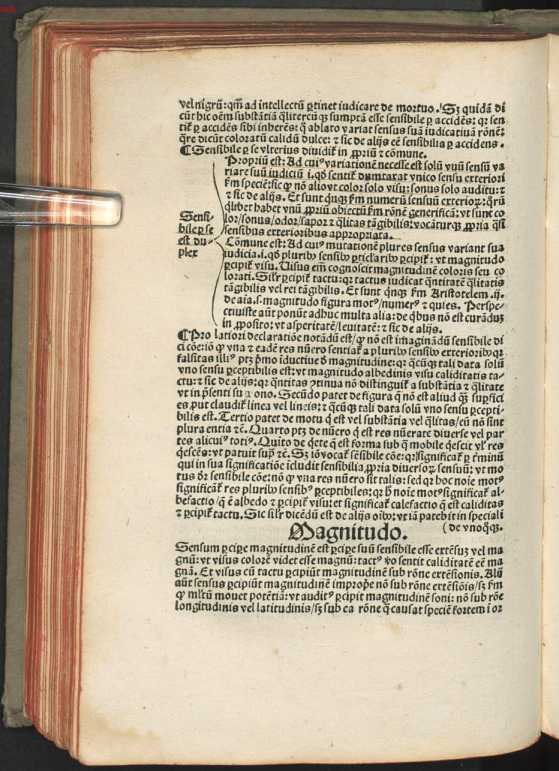 vel nigrū: qm̄ ad intellectū ꝑtinet iudicare de mortuo. Sꝫ quidā di
cūt hic oēm substātiā qͣlitercūqꝫ sumptā esse sensibile ꝑ accidēs: qꝛ sen
tit̄ ꝑ accidēs sibi inherēs: ꝙ ablato variat sensus suā iudicatiuā rōnē:
qͣre dicūt coloratū calidū dulce: ⁊ sic de alijs eē sensibilia ꝑ accidens.
¶ Sensibile ꝑ se vlterius diuidit̄ in ꝓpriū ⁊ cōmune.
Sensi-
bile ꝑ se
est du-
plex
Propriū est: Ad cuiꝰ variationē necesse est solū vnū sensū va
riare suū iudiciū .i. qd̓ sentit̄ dumtaxat vnico sensu exteriori
ẜm speciē: sic ꝙ nō aliov̓t color solo visu: sonus solo auditu: ⁊
⁊ sic de alijs. Et sunt qͥnqꝫ ẜm numerū sensuū exteriorꝝ: qꝛ
qͥlibet habet vnū ꝓpriū obiectū ẜm rōnē generificā: vt sunt co
lor/sonus/odor/sapor ⁊ qͣlitas tāgibilis: vocāturqꝫ ꝓpria qͣsi
sensibus exterioribus appropriata.
Cōmune est: Ad cuiꝰ mutationē plures sensus variant sua
iudicia .i. qd̓ pluribꝰ sensibꝰ ꝑticl̓aribꝰ ꝑcipit̄: vt magnitudo
ꝑcipit̄ visu. Uisus em̄ cognoscit magnitudinē coloris seu co
lorati. Sil̓r ꝑcipit̄ tactu: qꝛ tactus iudicat qͣntitatē qͣlitatis
tāgibilis vel rei tāgibilis. Et sunt qͥnqꝫ ẜm Aristotelem .ij.
de aīa .s. magnitudo figura motꝰ/numerꝰ ⁊ quies. Perspe-
ctiuiste aūt ponūt adhuc multa alia: de qͥbus nō est curādū
in ꝓposito: vt asperitatē/leuitatē: ⁊ sic de alijs.
¶ Pro latiori declaratiōe notādū est/ꝙ nō est imaginādū sensibile di
ci cōe: iō ꝙ vna ⁊ eadē res nūero sentiat̄ a pluribꝰ sensibꝰ exterioribꝰ: qꝛ
falsitas illiꝰ ptꝫ pͥmo iductiue d̓ magnitudine: qꝛ qͣcūqꝫ tali data solū
vno sensu ꝑceptibilis est: vt magnitudo albedinis visu caliditatis ta-
ctu: ⁊ sic de alijs: qꝛ qͣntitas ꝯtinua nō distinguit̄ a substātia ⁊ qͣlitate
vt in pͥsenti suꝑono. Secūdo patet de figura q̄ nō est aliud qͣꝫ suꝑfici
es ꝓut claudit̄ linea vel lineis: ⁊ qͣcūqꝫ tali data solū vno sensu ꝑcepti-
bilis est. Tertio patet de motu qͥ est vel substātia vel qͣlitas/cū nō sint
plura entia ⁊c̄. Quarto ptꝫ de nūero qͥ est res nūerate diuerse vel par
tes alicuiꝰ totiꝰ. Quīto de qͥete q̄ est forma sub q̄ mobile qͥescit vl̓ res
qͥescēs: vt patuit supͣ ⁊c̄. Sꝫ iō vocat̄ sēsibile cōe: qꝛ significat̄ ꝑ t̓minū
qui in sua significatiōe īcludit sensibilia ꝓpria diuersoꝝ sensuū: vt mo
tus dr̄ sensibile cōe: nō ꝙ vna res nūero sit talis: sed qꝛ hoc noīe motꝰ
significat̄ res pluribꝰ sensibꝰ ꝑceptibiles: qꝛ h̓ noīe motꝰ significat̄ al-
befactio q̄ ē albedo ⁊ ꝑcipit̄ visu: et significat̄ calefactio q̄ est caliditas
⁊ ꝑcipit̄ tactu. Sic sil̓r dicēdū est de alijs oībꝰ: vt iā patebit in speciali
(de vnoqͦqꝫ.
Magnitudo.
Sensum ꝑciꝑe magnitudinē est ꝑciꝑe suū sensibile esse extēsuꝫ vel ma
gnū: vt visus colorē videt esse magnū: tactꝰ v̓o sentit caliditatē eē ma
gnā. Et visus cū tactu ꝑcipiūt magnitudinē sub rōne extēsionis. Alij
aūt sensus ꝑcipiūt magnitudinē improp̓e nō sub rōne extēsiōis/sꝫ ẜm
ꝙ ml̓tū mouet potētiā: vt auditꝰ ꝑcipit magnitudinē soni: nō sub rōe
longitudinis vel latitudinis/sꝫ sub ea rōne q̄ causat speciē fortem i or